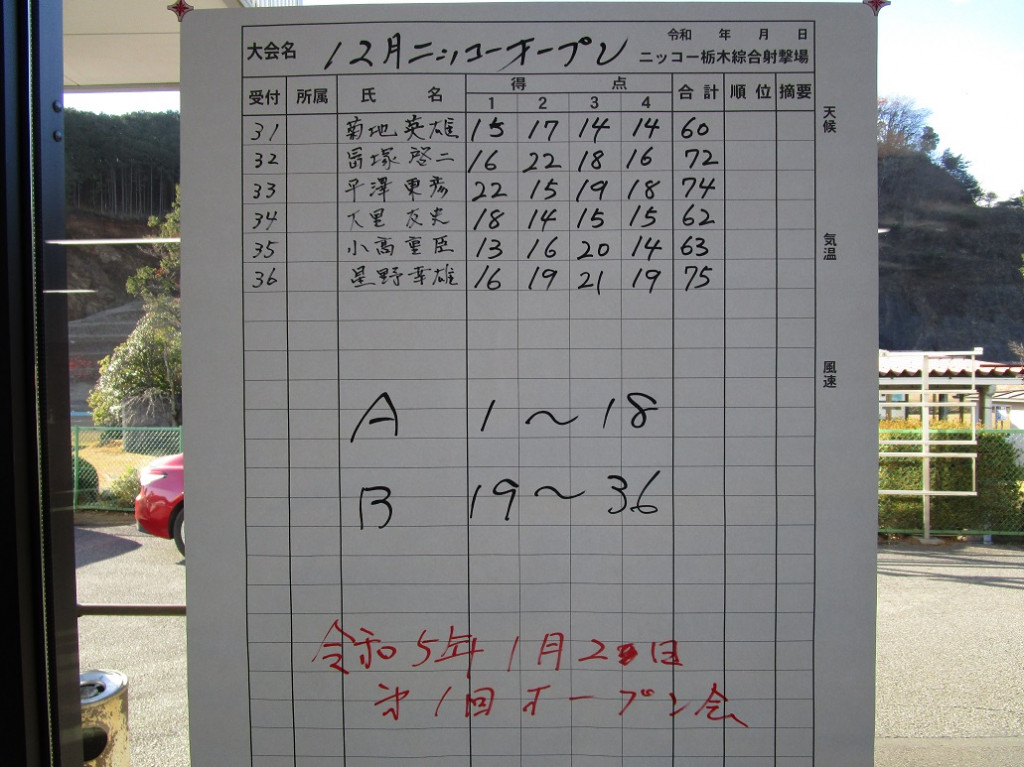 令和 年 月 日
大会名 12月ニッコーオープン ニッコー栃木綜合射撃場
受付 所属 氏 名 得 点 合計 順位 摘要
1 2 3 4
31 菊地 英雄 15 17 14 14 60
32 塚 啓二 16 22 18 16 72
33 平澤 東彦 22 15 19 18 74
34 大里 友史 18 14 15 15 62
35 小高 重臣 13 16 20 14 63
36 星野 幸雄 16 19 21 19 75
A 1〜18
B 19〜36
令和5年1月2日
第1回オープン会
天候
気温
風速